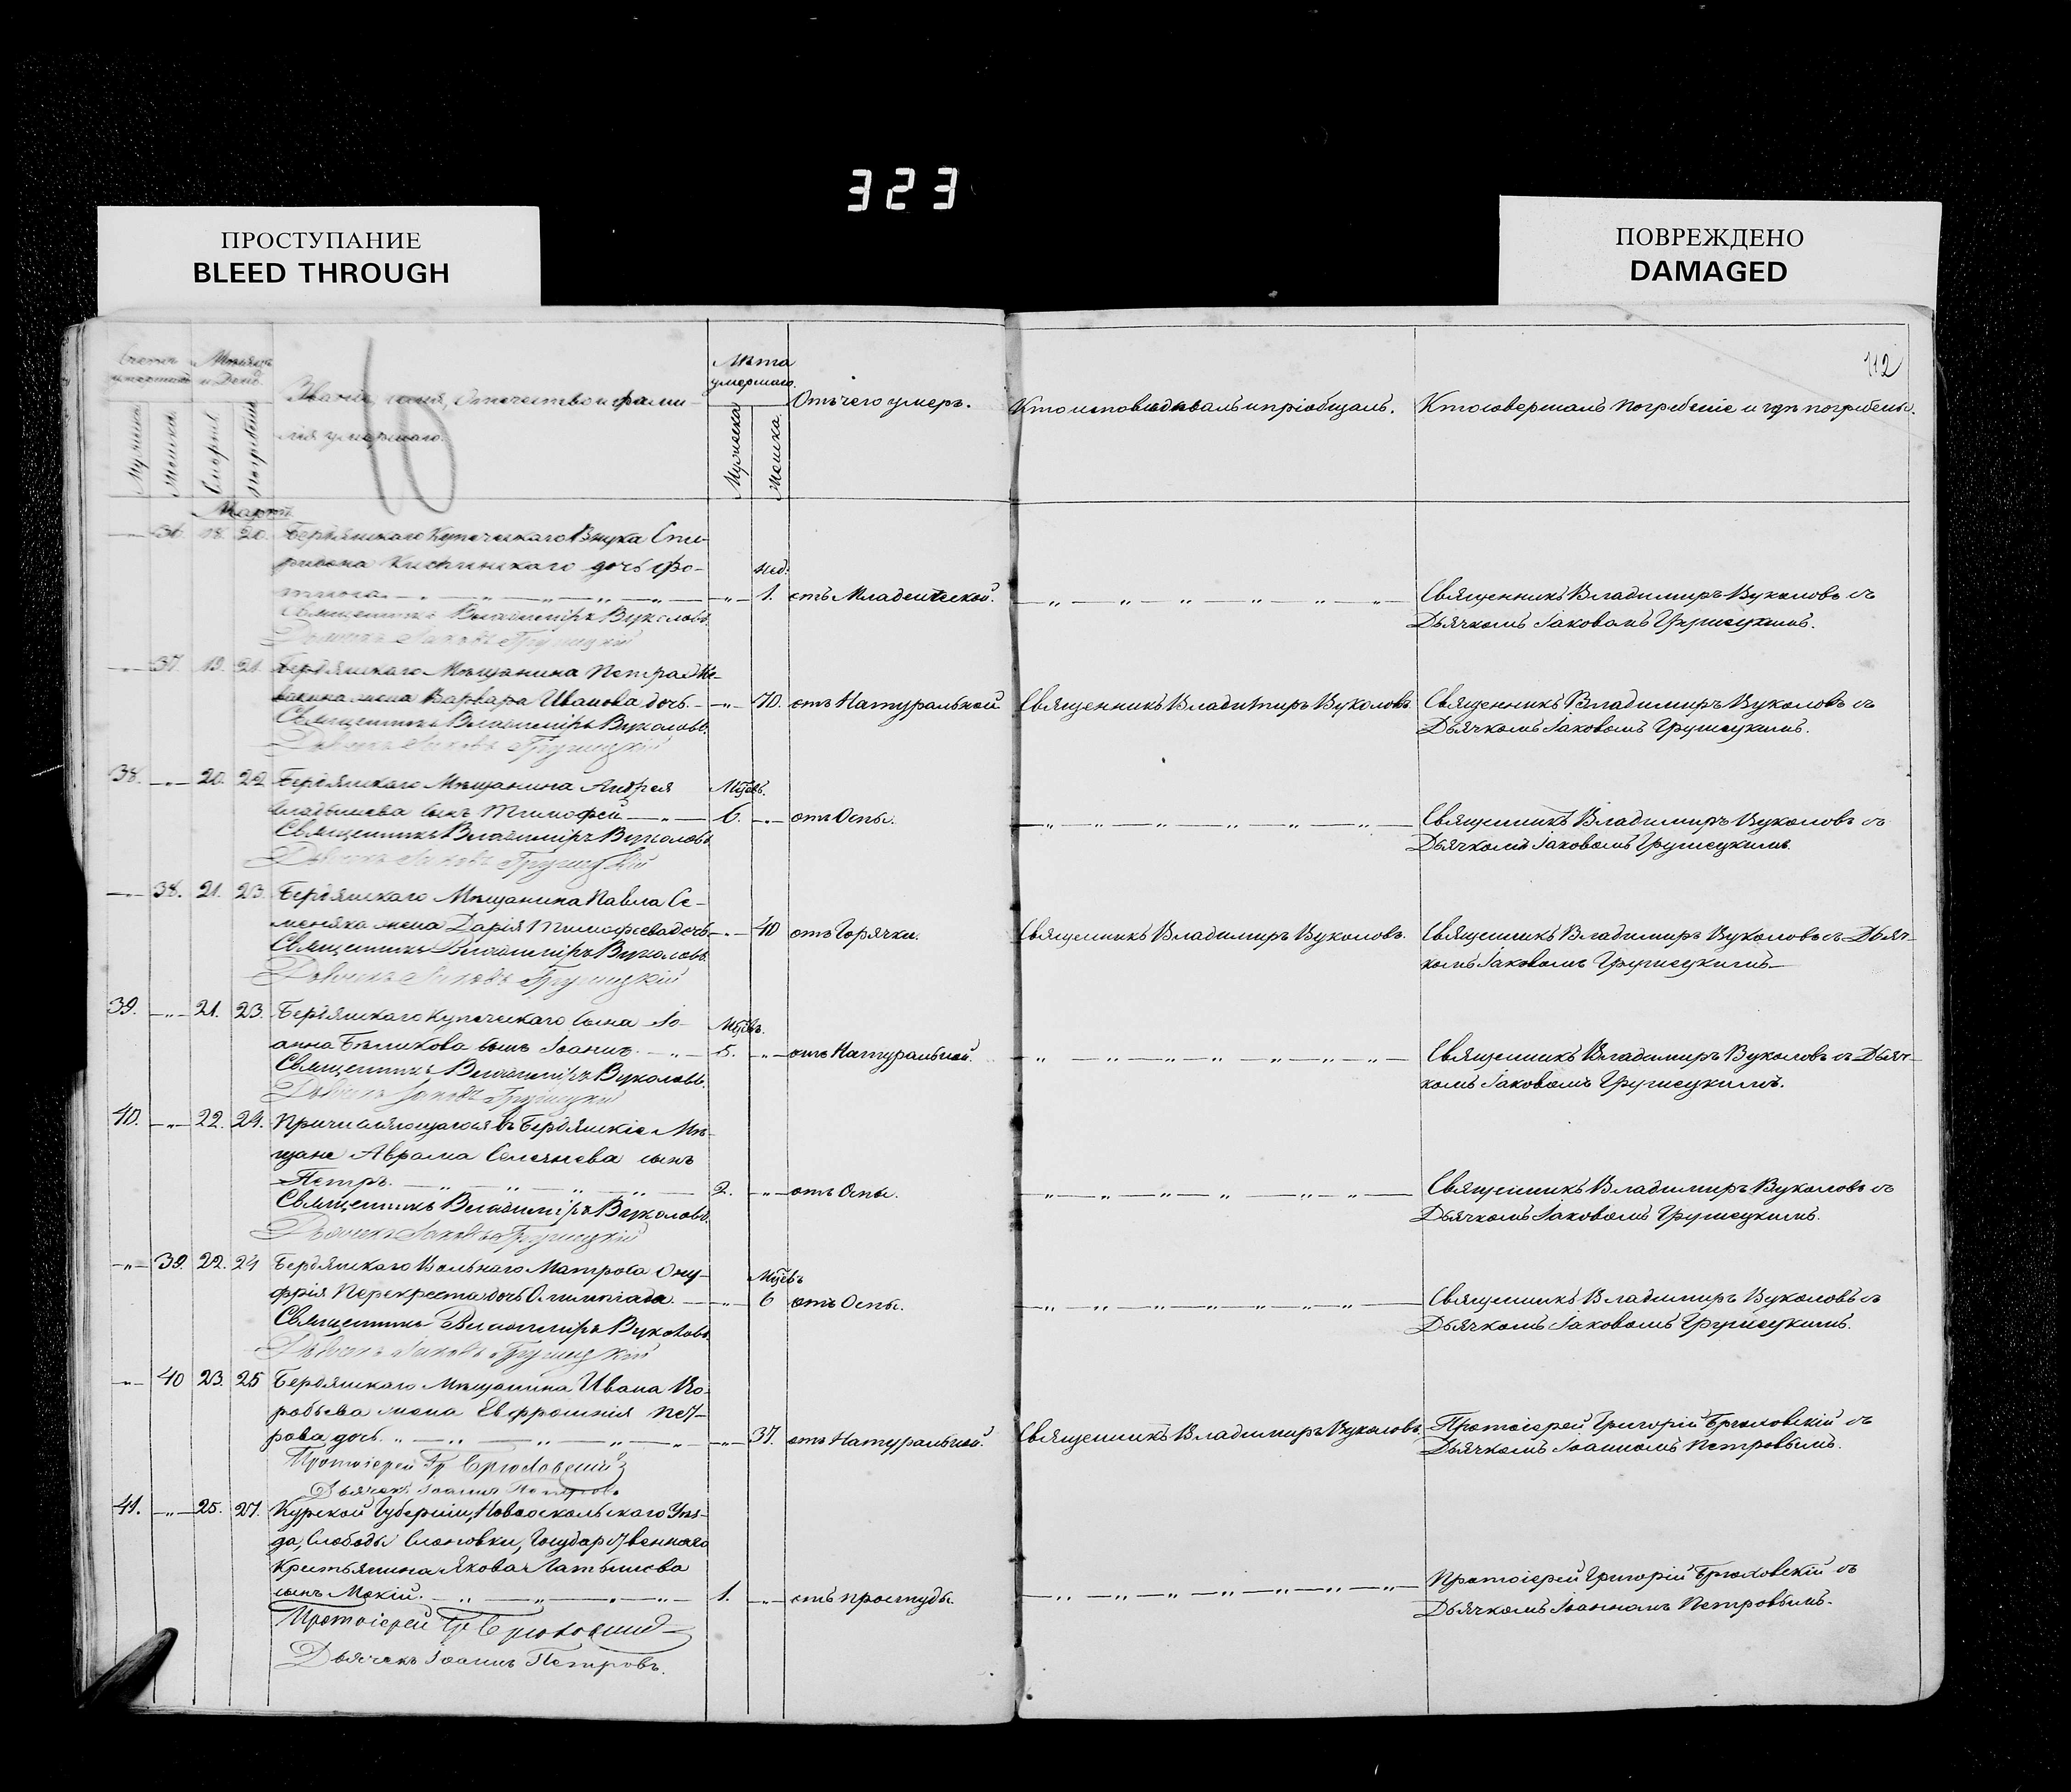 323
ПРОСТУПАНИЕ
BLEED THROUGH
ПОВРЕЖДЕНО
DAMAGED
112
Счетъ умершихъ
Мѣсяцъ и День.
Званіе, имя, Отечество и фами-
лія умершаго.
Лѣта умершаго.
Отъ чего умеръ.
Кто исповѣдывалъ и пріобщалъ.
Кто совершалъ погребеніе и гдѣ погребены.
Мужеска
Женска
Смерти
Погребенія
Мужеска
Женска.
Мартъ
36. 18. 20. Бердянскаго Купеческаго Внука Спи-
ридона дочь Фо-
нед:
1. отъ Младенческой.
Священникъ Владимиръ Вуколовъ съ
Дьячкомъ Іаковомъ Грушецкимъ.
Священникъ Владиміръ Вуколовъ.
Дьячекъ Іаковъ Грушецкій
37. 19. 21. Бердянскаго Мѣщанина Петра
жена Варвара Иванова дочь. 70. отъ Натуральной
Священникъ Владимиръ Вуколовъ
Священникъ Владимиръ Вуколовъ съ
Дьячкомъ Іаковомъ Грушецкимъ.
Священникъ Владиміръ Вуколовъ.
Дьячекъ Іаковъ Грушецкій
38. 20. 22 Бердянскаго Мѣщанина Андрея
Мцевъ.
сынъ Тимофей 6. отъ Оспы.
Священникъ Владимиръ Вуколовъ съ
Дьячкомъ Іаковомъ Грушецкимъ.
Священникъ Владиміръ Вуколовъ
Дьячекъ Іаковъ Грушецкій
38. 21. 23. Бердянскаго Мѣщанина Павла Се-
меняка жена Дарія Тимофеева дочь 40 отъ Горячки.
Священникъ Владимиръ Вуколовъ.
Священникъ Владимиръ Вуколовъ съ Дьяч-
комъ Іаковомъ Грушецкимъ
Священникъ Владиміръ Вуколовъ.
Дьячекъ Іаковъ Грушецкій
39. 21. 23. Бердянскаго Купеческаго Сына Іо-
Мцевъ.
анна Бѣликова сынъ Іоаннъ. 5. отъ Натуральной.
Священникъ Владимиръ Вуколовъ съ Дьяч-
комъ Іаковомъ Грушецкимъ.
Священникъ Владиміръ Вуколовъ.
Дьячекъ Іаковъ Грушецкій
40. 22. 24. Причисляющагося въ Бердянскіе Мѣ-
щане Аврама сынъ
Петръ. 2. отъ Оспы.
Священникъ Владимиръ Вуколовъ съ
Дьячкомъ Іаковомъ Грушецкимъ.
Священникъ Владиміръ Вуколовъ.
Дьячекъ Іаковъ Грушецкій
39. 22. 24 Бердянскаго Вольнаго Матроса Ону-
Мцевъ
фрія Перекреста дочь Олимпіада. 6 отъ Оспы.
Священникъ Владимиръ Вуколовъ съ
Дьячкомъ Іаковомъ Грушецкимъ.
Священникъ Владиміръ Вуколовъ
Дьячекъ Іаковъ Грушецкій
40 23. 25 Бердянскаго Мѣщанина Ивана Во-
робьева жена Евфросинія Пет-
рова дочь. 37. отъ Натуральной.
Священникъ Владимиръ Вуколовъ.
Протоіерей Григорій Брюховскій съ
Дьячкомъ Іоанномъ Петровымъ.
Протоіерей Гр Брюховскій
Дьячекъ Іоаннъ Петровъ
41. 25. 27. Курской Губерніи, Новооскольскаго Уѣз-
да, Слободы Слоновки, Государственнаго
Крестьянина Якова Латышева
сынъ Мокій. 1. отъ простуды.
Протоіерей Григорій Брюховскій съ
Дьячкомъ Іоанномъ Петровымъ.
Протоіерей Гр Брюховскій
Дьячекъ Іоаннъ Петровъ.